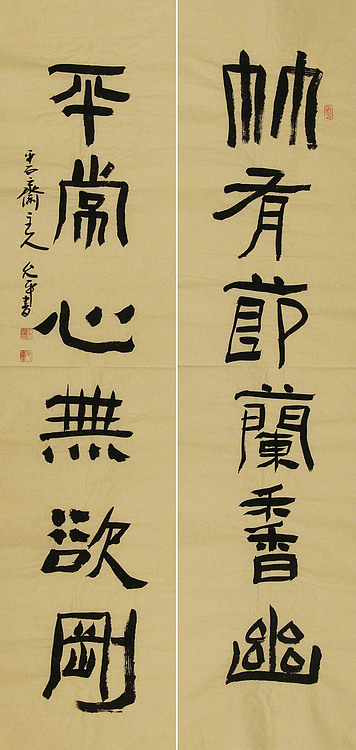 竹有節蘭香幽
平常心無欲剛
齋主人 書